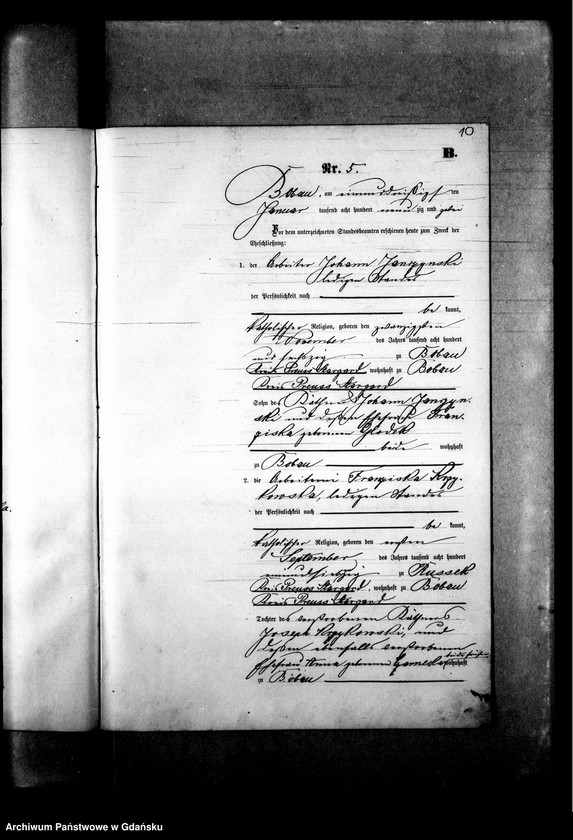 10
B.
Nr. 5.
Bobau, am einunddreißigsten
Januar tausend acht hundert neunzig und zwei
Vor dem unterzeichneten Standesbeamten erschienen heute zum Zweck der
Eheschließung:
1. der Arbeiter Johann
ledigen Standes
der Persönlichkeit nach
be kannt,
katholischer Religion, geboren den zwanzigsten
November des Jahres tausend acht hundert
und sechszig zu Bobau
Kreis Preuss Stargard, wohnhaft zu Bobau
Kreis Preuss Stargard
Sohn des Käthners Johann
und dessen Ehefrau Fran-
ziska geborenen
beide wohnhaft
zu Bobau
2. die Arbeiterin Franziska Krzy-
kowska, ledigen Standes
der Persönlichkeit nach
be kannt,
katholischer Religion, geboren den ersten
September des Jahres tausend acht hundert
einundsiebzig zu Russek
Kreis Preuss Stargard, wohnhaft zu Bobau
Kreis Preuss Stargard
Tochter des verstorbenen Käthners
Joseph Krzykowski, und
dessen ebenfalls verstorbenen
Ehefrau Anna geborenen wohnhaft
zu Bobau
Archiwum Państwowe w Gdańsku